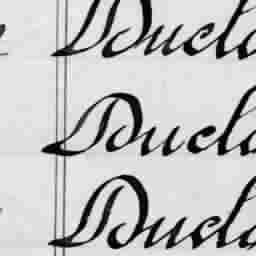 Duclo
Duclo
Duclo